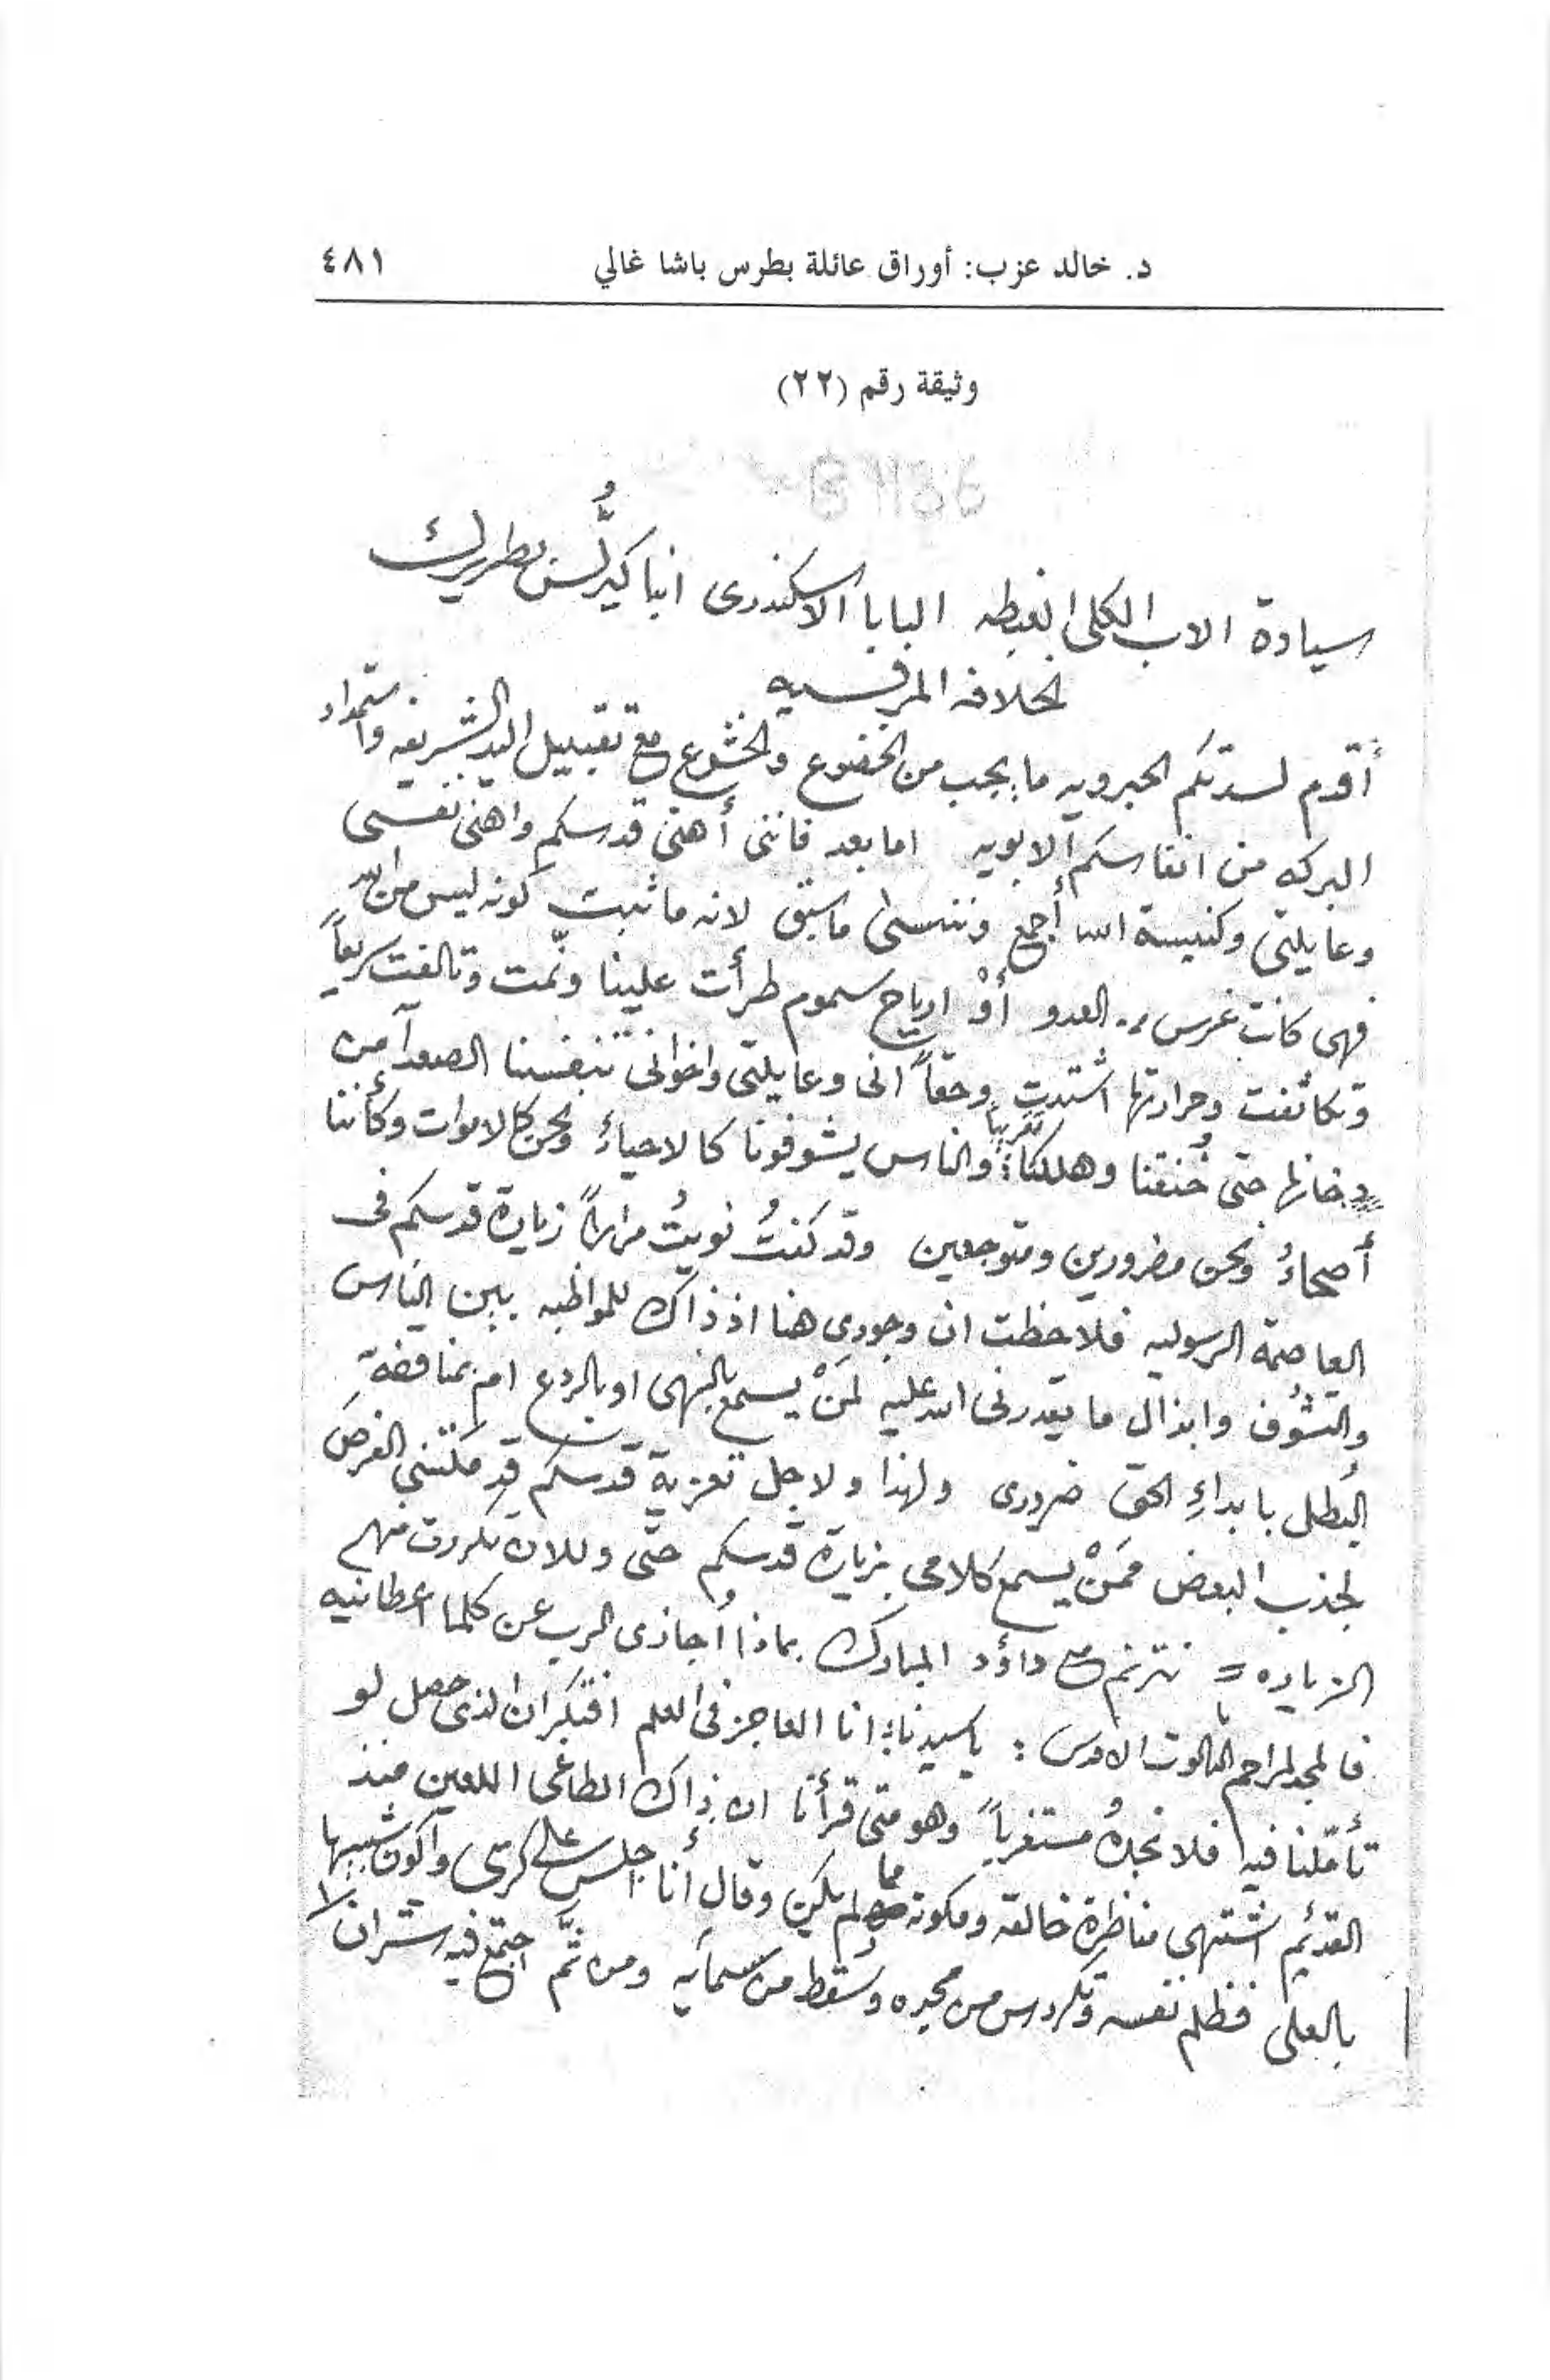 د. خالد عزب: أوراق عائلة بطرس باشا غالي ٤٨١
وثيقة رقم (٢٢)
سيادة الاب الكلى الغبطه البابا الاسكندرى انبا كيرلُّس بطريرك
الخلافه المرقسيه
أقدم لسدتكم الحبرويه ما يجب من الخضوع والخشوع مع تقبيل اليد الشريفه واستمداد
البركه من انفاسكم الابويه اما بعد فاننى أهنئ قدسكم واهنئ نفسى
وعايلتى وكنيسة الله أجمع وننسى ما سبق لانه ما ثبت كونه ليس من الله
فهى كانت غرس العدو أوْ ارياح سموم طرأت علينا ونّمت وتالفت سريعاً
وتكاثفت وحرارتها اشتدت وحقاً انى وعايلتى واخوانى تنفسنا الصعدآ من
دخانها حتى خُنقنا وهلكنا تقريباً والناس يشوفونا كالاحياء ونحن كالاموات وكأننا
أصحاءُ ونحن مضرورين ومتوجعين وقد كنتُ نويتُ مراراً زيارة قدسكم فى
العاصمة الرسوليه فلاحظت ان وجودى هنا اذ ذاك للمواظبه بين الناس
والتشوُف وابذال ما يقدرنى الله عليه لمَنْ يسمع بالنهى او بالردع ام بمناقضة
البُطلى بابداءِ الحق ضرورى ولهذا ولاجل تعزية قدسكم قد مكّنتنى الفرصَ
لجذب البعض ممَنْ يسمع كلامى بزيارة قدسكم حتى وللان تكررت منهم
الزياره = نترنم مع داؤد المبارك بماذا أُجازى الرب عن كلما اعطانيه
فالمجد لمراحم الثالوث الاقدس : ياسيدنا انا العاجز فى العلم افتكر ان الذى حصل لو
تأمّلنا فيه فلا نجدهُ مستغرباً وهو متى قرأنا ان ذاك الطاغى اللعين منذ
القديم اشتهى مناظرة خالقه ومكونه مما لم يكن وقال أنا أجلس على كرسى وأكون شبيها
بالعلى فظلم نفسه وتكردس من مجده وسُقط من سمآيه ومن ثَّم اجتمع فيه شران